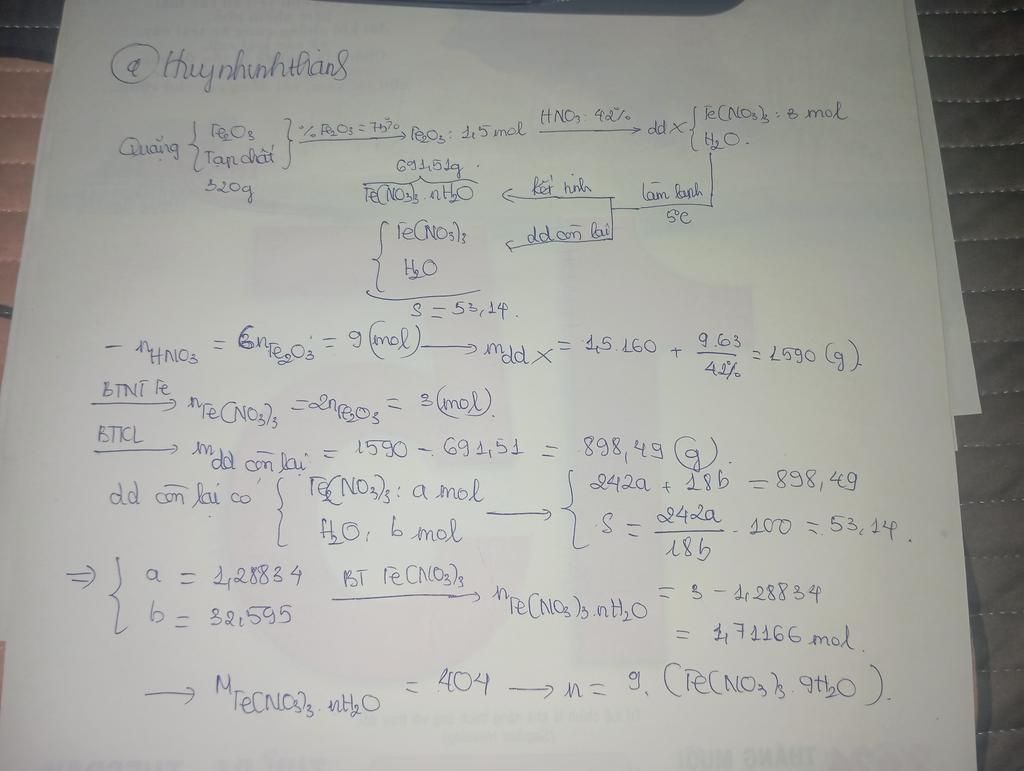 @ Huynhinhthành
Quặng { Fe2O3 Tạp chất } 320g
%Fe2O3 = 75% → Fe2O3 : 1,5 mol
HNO3 : 42% → dd X { Fe(NO3)3 : 3 mol H2O.
691,51g.
Fe(NO3)3 . nH2O ← kết tinh
làm lạnh 5°C
{ Fe(NO3)3 H2O ← dd còn lại
S = 53,14.
- nHNO3 = 6nFe2O3 = 9 (mol) → mdd X = 1,5.160 + 9.63/42% = 1590 (g).
BTNT Fe → nFe(NO3)3 = 2nFe2O3 = 3 (mol).
BTKL → mdd còn lại = 1590 - 691,51 = 898,49 (g).
dd còn lại có { Fe(NO3)3 : a mol H2O : b mol → { 242a + 18b = 898,49 S = 242a/18b . 100 = 53,14.
⇒ { a = 1,28834 b = 32,595 BT Fe(NO3)3 → nFe(NO3)3.nH2O = 3 - 1,28834
= 1,71166 mol.
→ MFe(NO3)3.nH2O = 404 → n = 9. (Fe(NO3)3.9H2O).